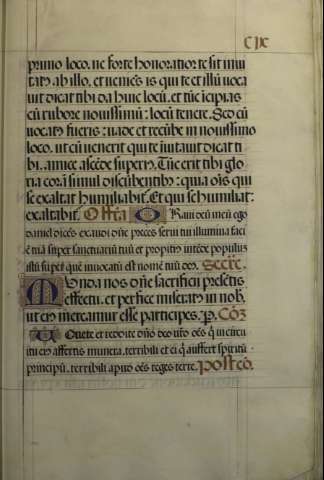 CIX
primo loco. ne forte honoratior te sit inui
tatus ab illo. et ueniēs is qui te et illū uoca
uit dicat tibi da huic locū. et tūc īcipias
cū rubore nouissimū: locū tenere. Sed cū
uocatus fueris: uade et recūbe in nouissimo
loco. ut cū uenerit qui te īuitauit dicat ti
bi. amice ascēde superius. Tūc erit tibi glo
ria corā simul discūbentibus: quia oīs qui
se exaltat humiliabit. Et qui se humiliat:
exaltabit. Offīa ORaui deū meū ego
daniel dicēs exaudi dn̄e preces serui tui illumina faci
ē tuā super sanctuariū tuū et propitius intēde populus
istū super quē inuocatū est nomē tuū deus. Secr̄e.
MUnda nos dn̄e sacrificii presētis
effectu. et perfice miseratus in nob̄.
ut eius mereamur esse participes. P. Cōz
Uouete et reddite dn̄o deo ur̄o oēs qui in circu
itu eius affertis munera. terribili et ei qui auffert spiritū
principū. terribili apud oēs reges terre. Postcō.